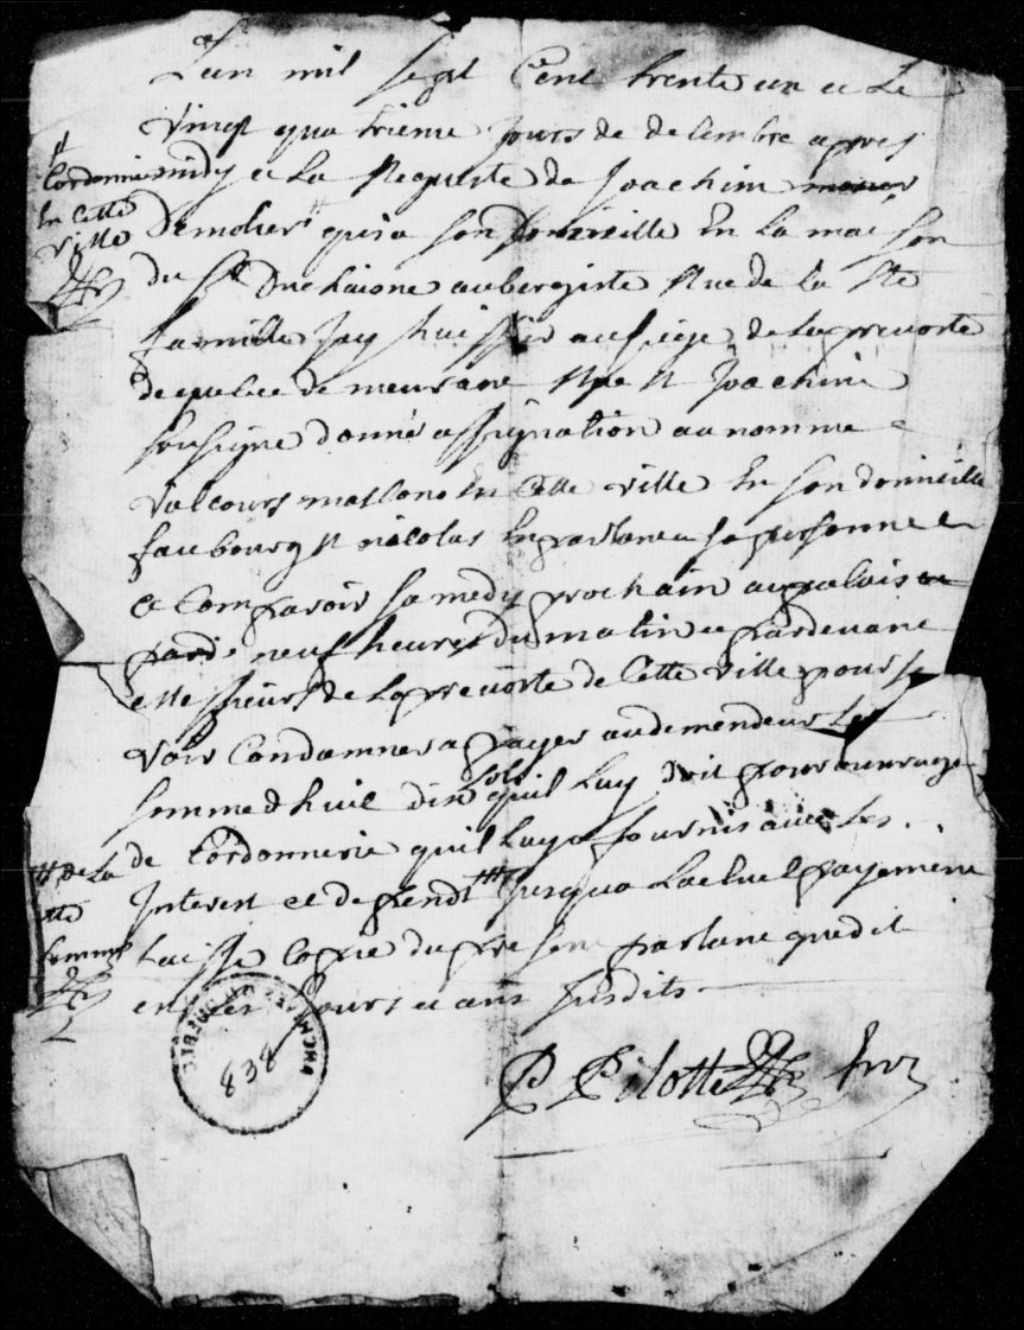 Lan mil sept Cent trente un et Le
vingt quatrieme Jours de decembre apres
midy a La Requeste de Joachim
Demolier # qui a son domicille En La maison
du Sr Duchaine aubergiste Rue de la Ste
famille Jay huissier au siege de la prevoste
de quebec demeurant Rue St Joachim
soussigne donné assignation au nomme
valcours masson En Cette ville En son domicille
faubourg St nicolas En parlant a sa personne
a Comparoir samedy prochain au palais
pardt neuf heures du matin et pardevant
Messieurs de la prevoste de Cette ville pour se
voir Condamner a payer au demendeur La
somme d huit dix sols quil Luy doit pour ouvrage
de Cordonnerie quil Luy a fournis avec Les
Interest et depend ### Jusqua Lactuel payement
Laisse Copie du present parlant que dit
en Les Jours et ans susdits
P Pilotte
# Cordonnier
En Cette
ville
## de La
somme
ARCHIVES QUEBEC
838